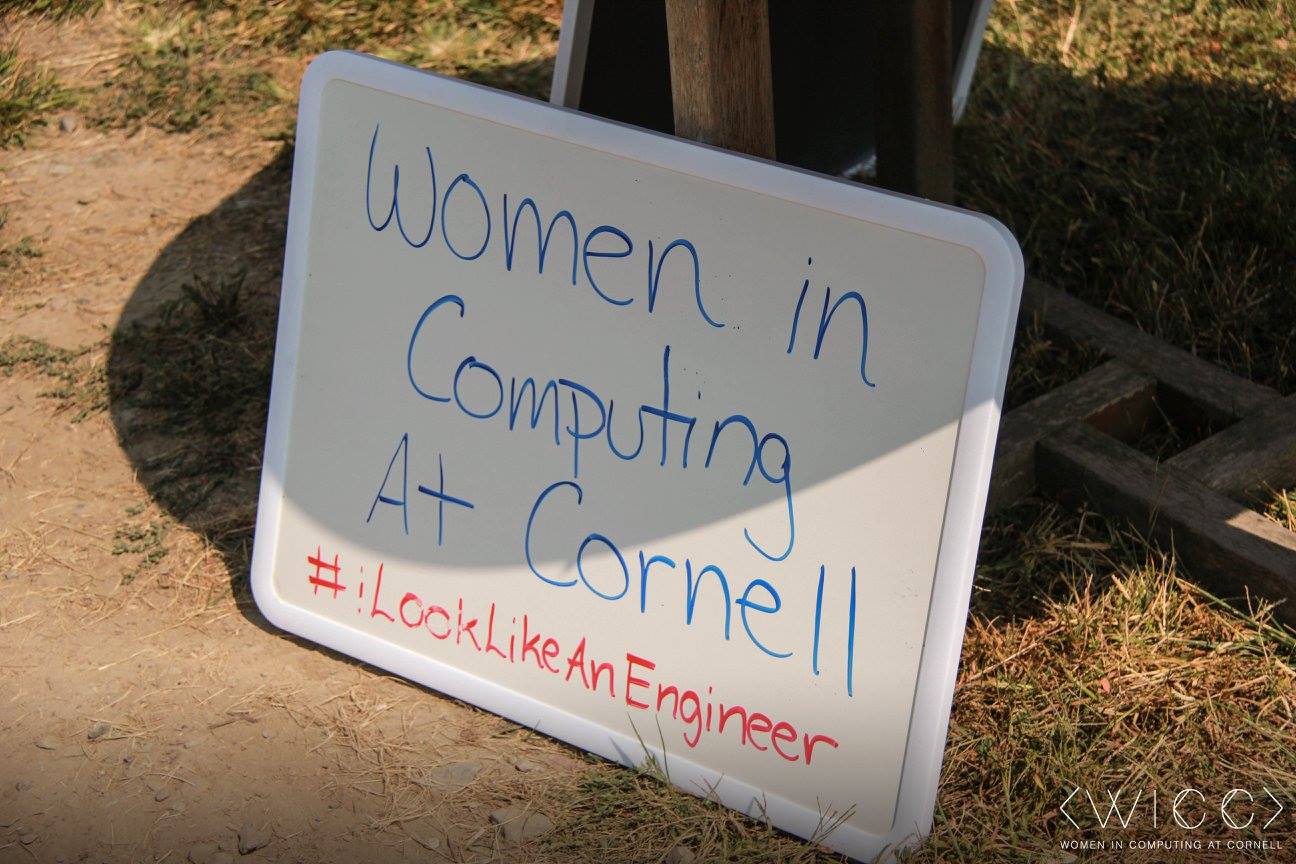 Women in
Computing
At Cornell
#iLookLikeAnEngineer
<WICC>
WOMEN IN COMPUTING AT CORNELL